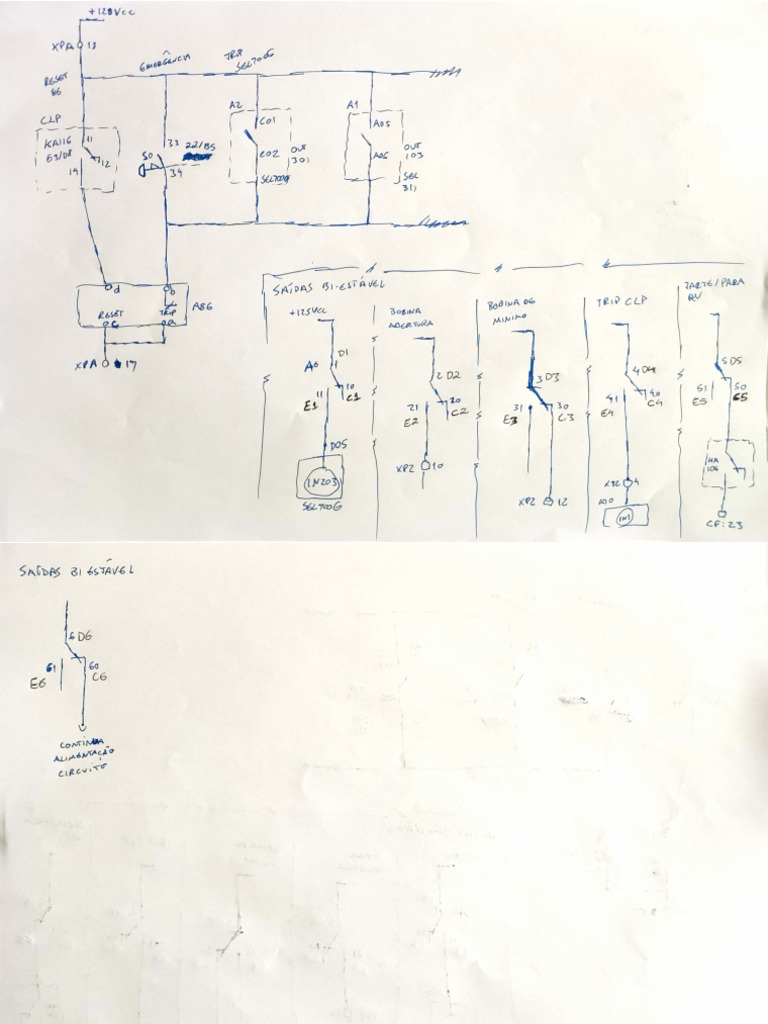 +125Vcc
XPA 13
RESET
86
EMERGÊNCIA
TRIP
SEL700G
CLP
KA116
E3/D8
11
12
14
S0
33
34
22/BS
A2
C01
C02
OUT
301
SEL700G
A1
A05
A06
OUT
103
SEL
311
d
b
RESET
TRIP
c
a
A86
XPA 17
SAÍDAS BI-ESTÁVEL
+125Vcc
D1
1
11
10
E1
C1
D05
IN203
SEL700G
BOBINA
ABERTURA
2 D2
21
20
E2
C2
XP2 10
BOBINA DE
MINIMO
3 D3
31
30
E3
C3
XP2 12
TRIP CLP
4 D4
41
40
E4
C4
XP2 4
A10
IN1
PARTE/PARA
RV
5 D5
51
50
E5
C5
KA
106
CF:23
SAÍDAS BI ESTÁVEL
6 D6
61
60
E6
C6
CONTINUA
ALIMENTAÇÃO
CIRCUITO